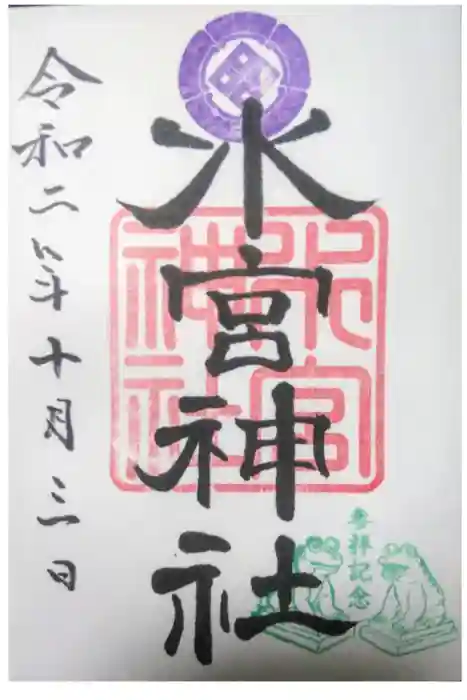 水宮神社
水宮
神社
参拝記念
令和二年十月三日